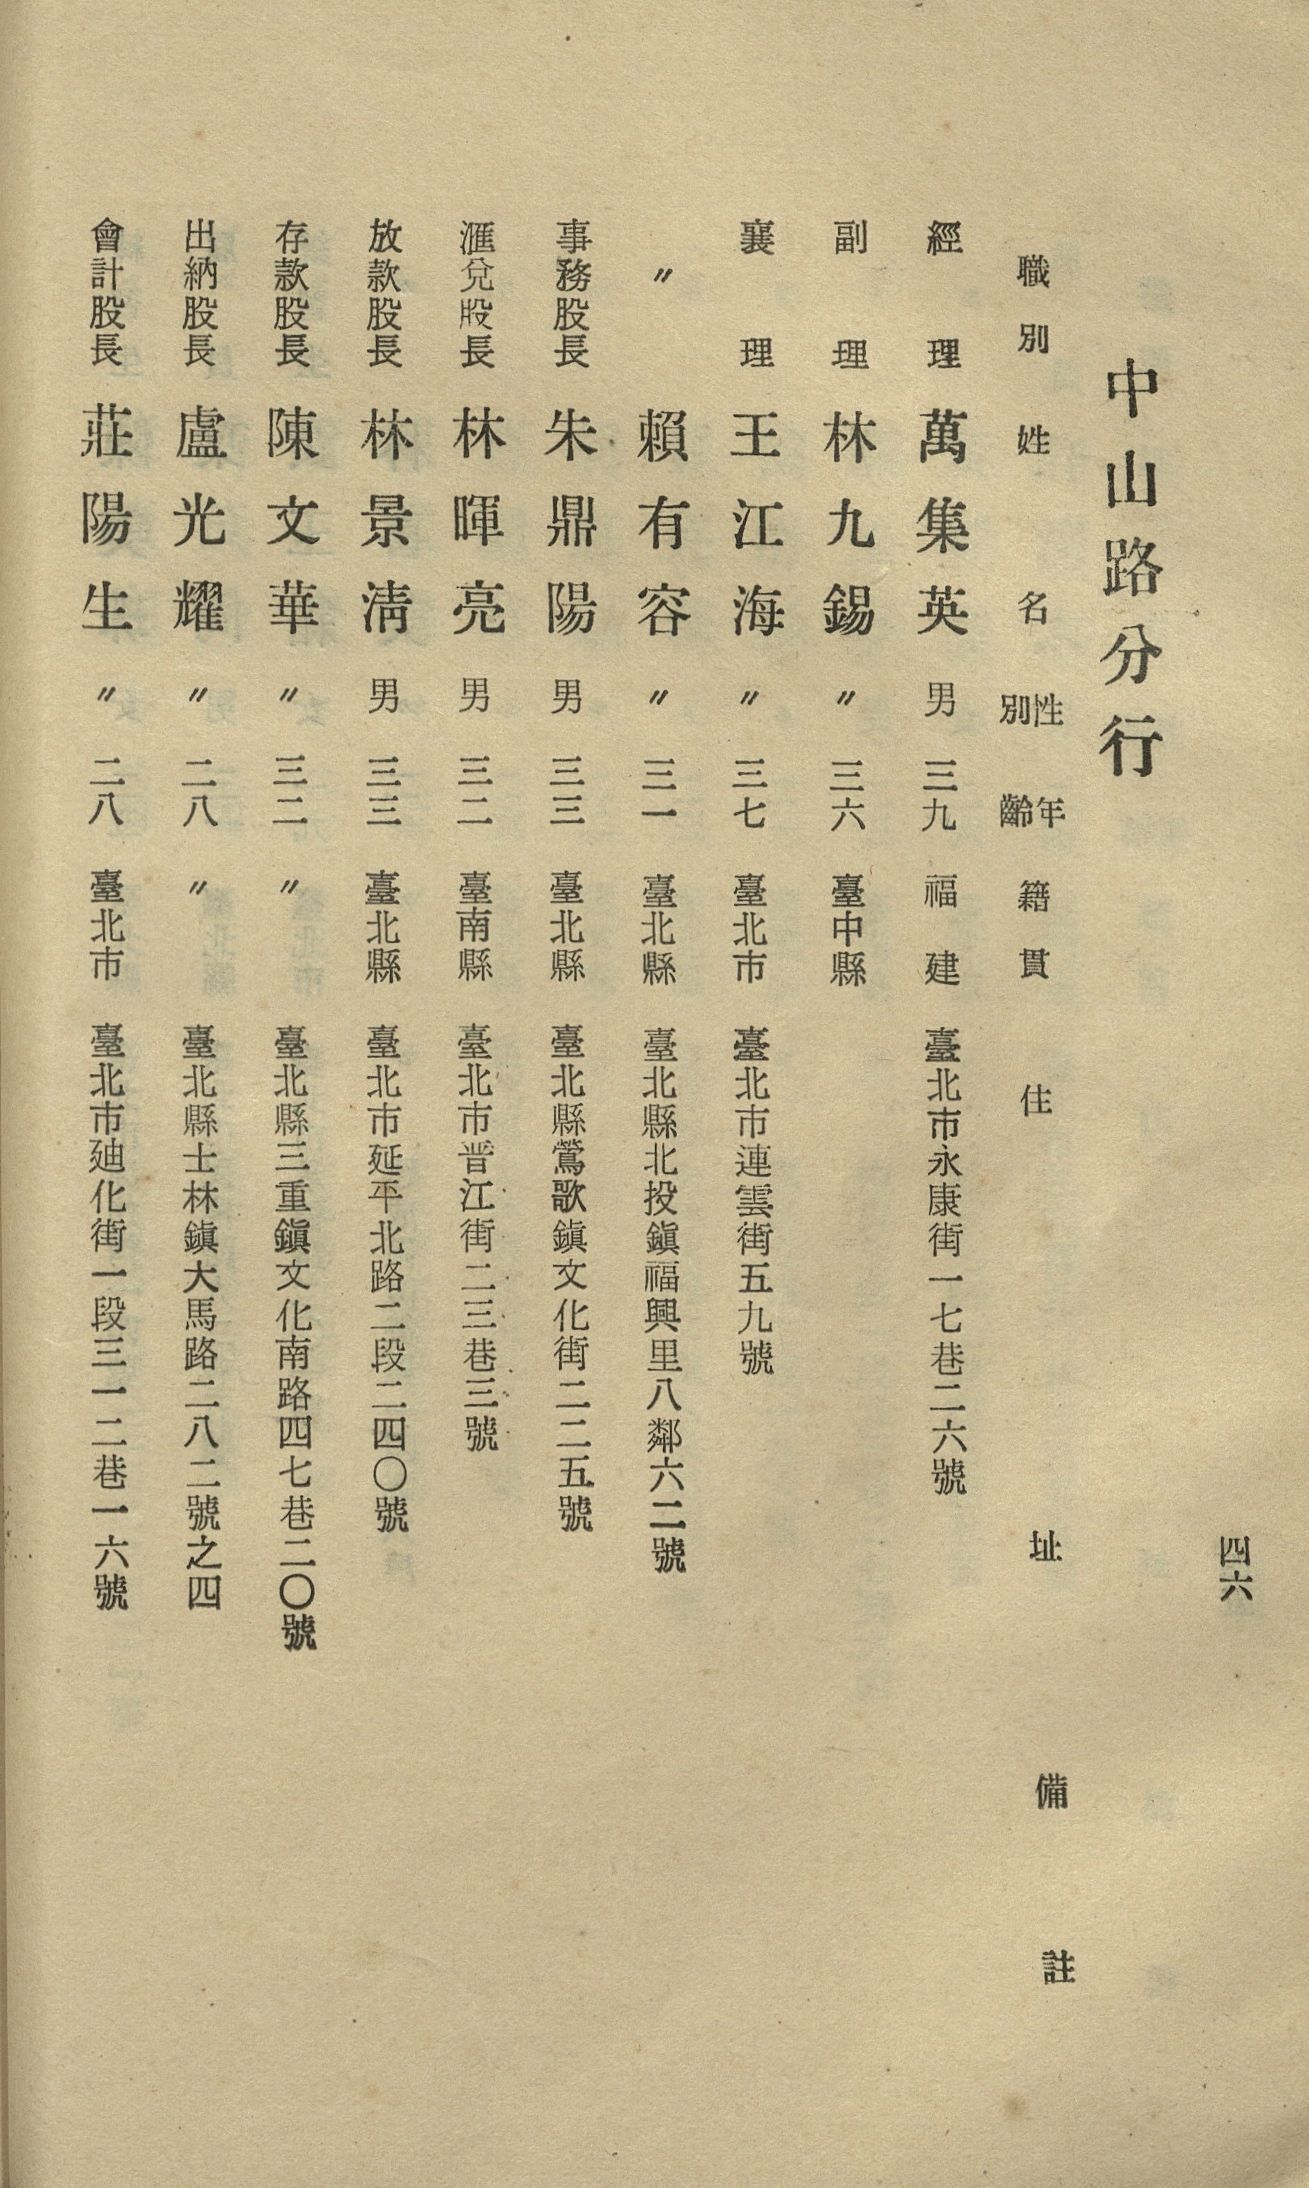 四六
中山路分行
職別 姓名 性別 年齡 籍貫 住址 備註
經理 萬集英 男 三九 福建 臺北市永康街一七巷二六號
副理 林九錫 〃 三六 臺中縣
襄理 王江海 〃 三七 臺北市 臺北市連雲街五九號
〃 賴有容 〃 三一 臺北縣 臺北縣北投鎮福興里八鄰六二號
事務股長 朱鼎陽 男 三三 臺北縣 臺北縣鶯歌鎮文化街二二五號
滙兌股長 林暉亮 男 三二 臺南縣 臺北市晋江街二三巷三號
放款股長 林景清 男 三三 臺北縣 臺北市延平北路二段二四〇號
存款股長 陳文華 〃 三二 〃 臺北縣三重鎮文化南路四七巷二〇號
出納股長 盧光耀 〃 二八 〃 臺北縣士林鎮大馬路二八二號之四
會計股長 莊陽生 〃 二八 臺北市 臺北市廸化街一段三一二巷一六號